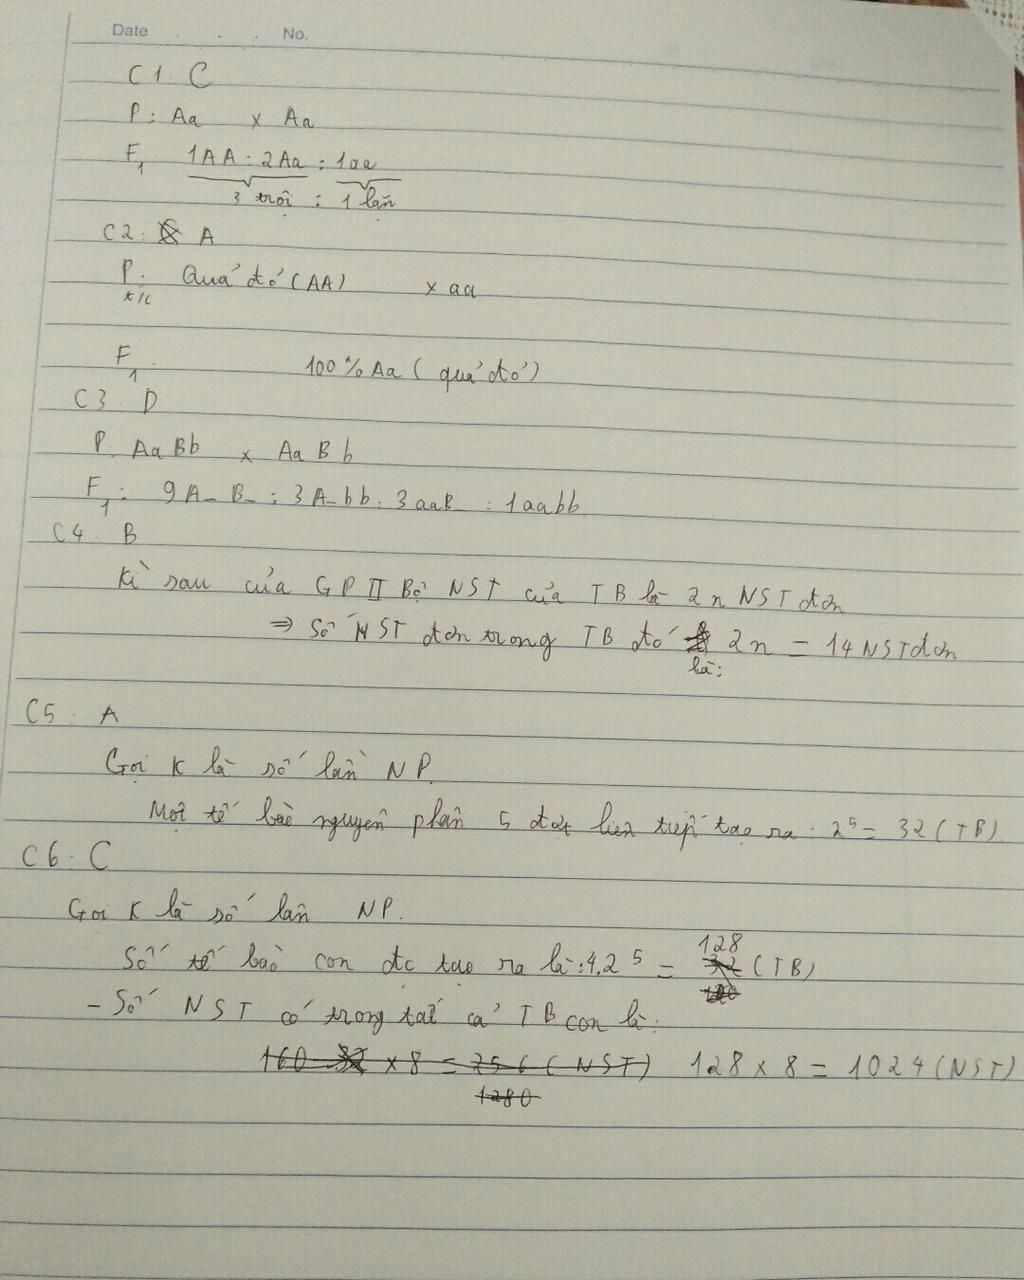 Date . . . No.
C1. C
P: Aa x Aa
F1 1AA : 2Aa : 1aa
3 trội : 1 lặn
C2: A
P: Quả đỏ (AA) x aa
t/c
F1: 100% Aa (quả đỏ)
C3. D
P. AaBb x AaBb
F1: 9A_B_ : 3A_bb : 3aaB_ : 1aabb
C4. B
Kì sau của GP II Bộ NST của TB là 2n NST đơn
⇒ Số NST đơn trong TB đó là: 2n = 14 NST đơn
C5. A
Gọi K là số lần NP.
Một tế bào nguyên phân 5 đợt liên tiếp tạo ra: 2⁵ = 32 (TB)
C6. C
Gọi K là số lần NP.
Số tế bào con đc tạo ra là: 4.2⁵ = 128 (TB)
- Số NST có trong tất cả TB con là:
160 32 x 8 = 256 (NST) 128 x 8 = 1024 (NST)
1280